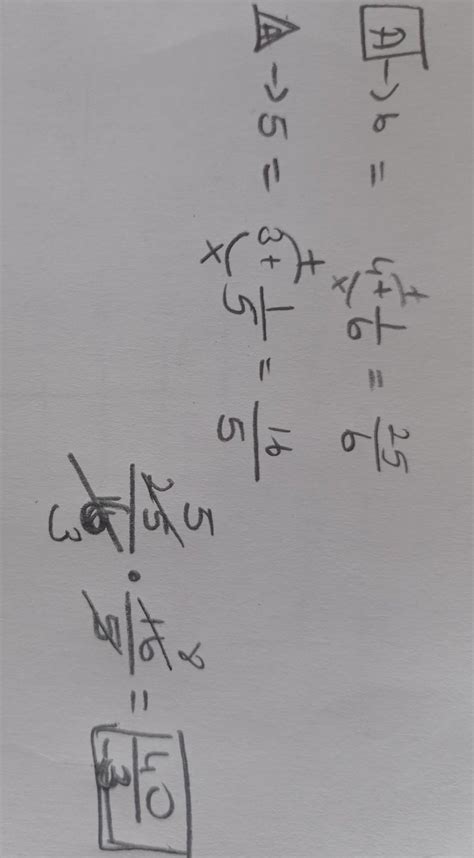 A → 6 = 4 + 1/6 = 25/6
+ x
A → 5 = 3 + 1/5 = 16/5
+ x
5 8
25/6 · 16/5 = 40/3
3